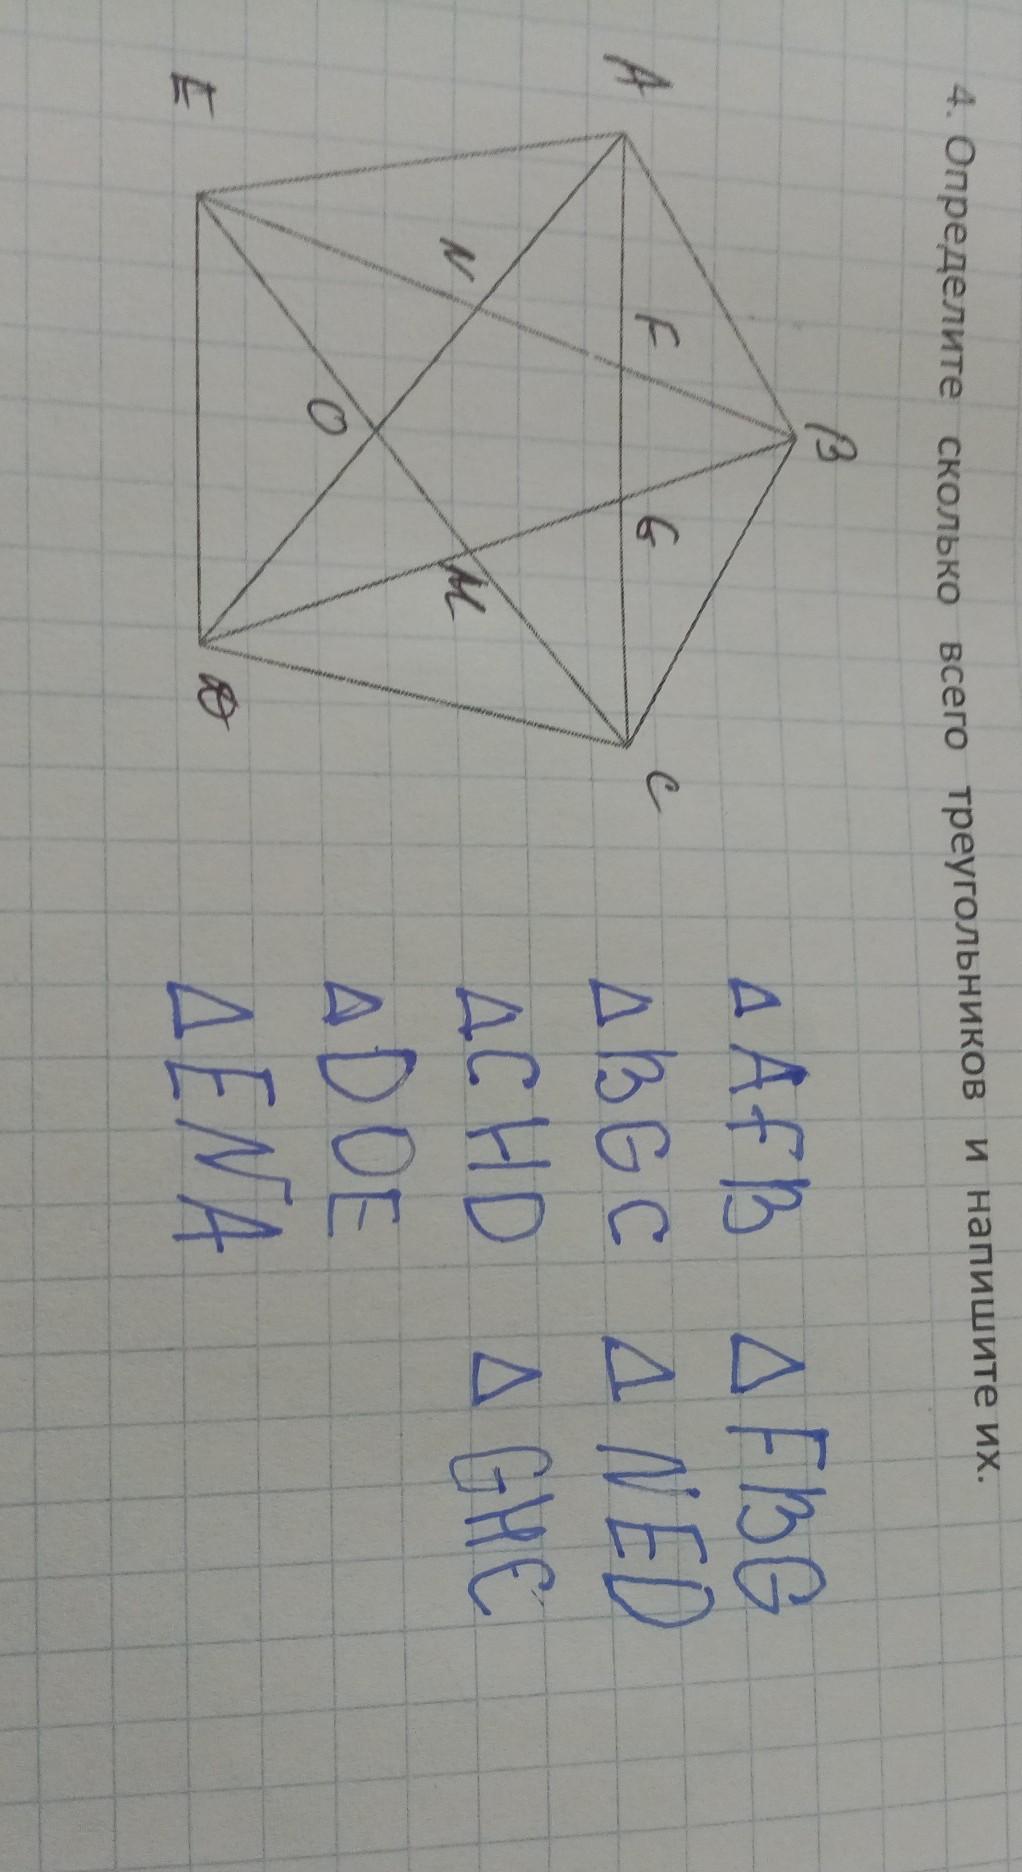 4. Определите сколько всего треугольников и напишите их.
B
A
F
G
C
N
M
O
E
D
Δ AFB Δ FBG
Δ BGC Δ NED
Δ CHD Δ GHC
Δ DOE
Δ ENA